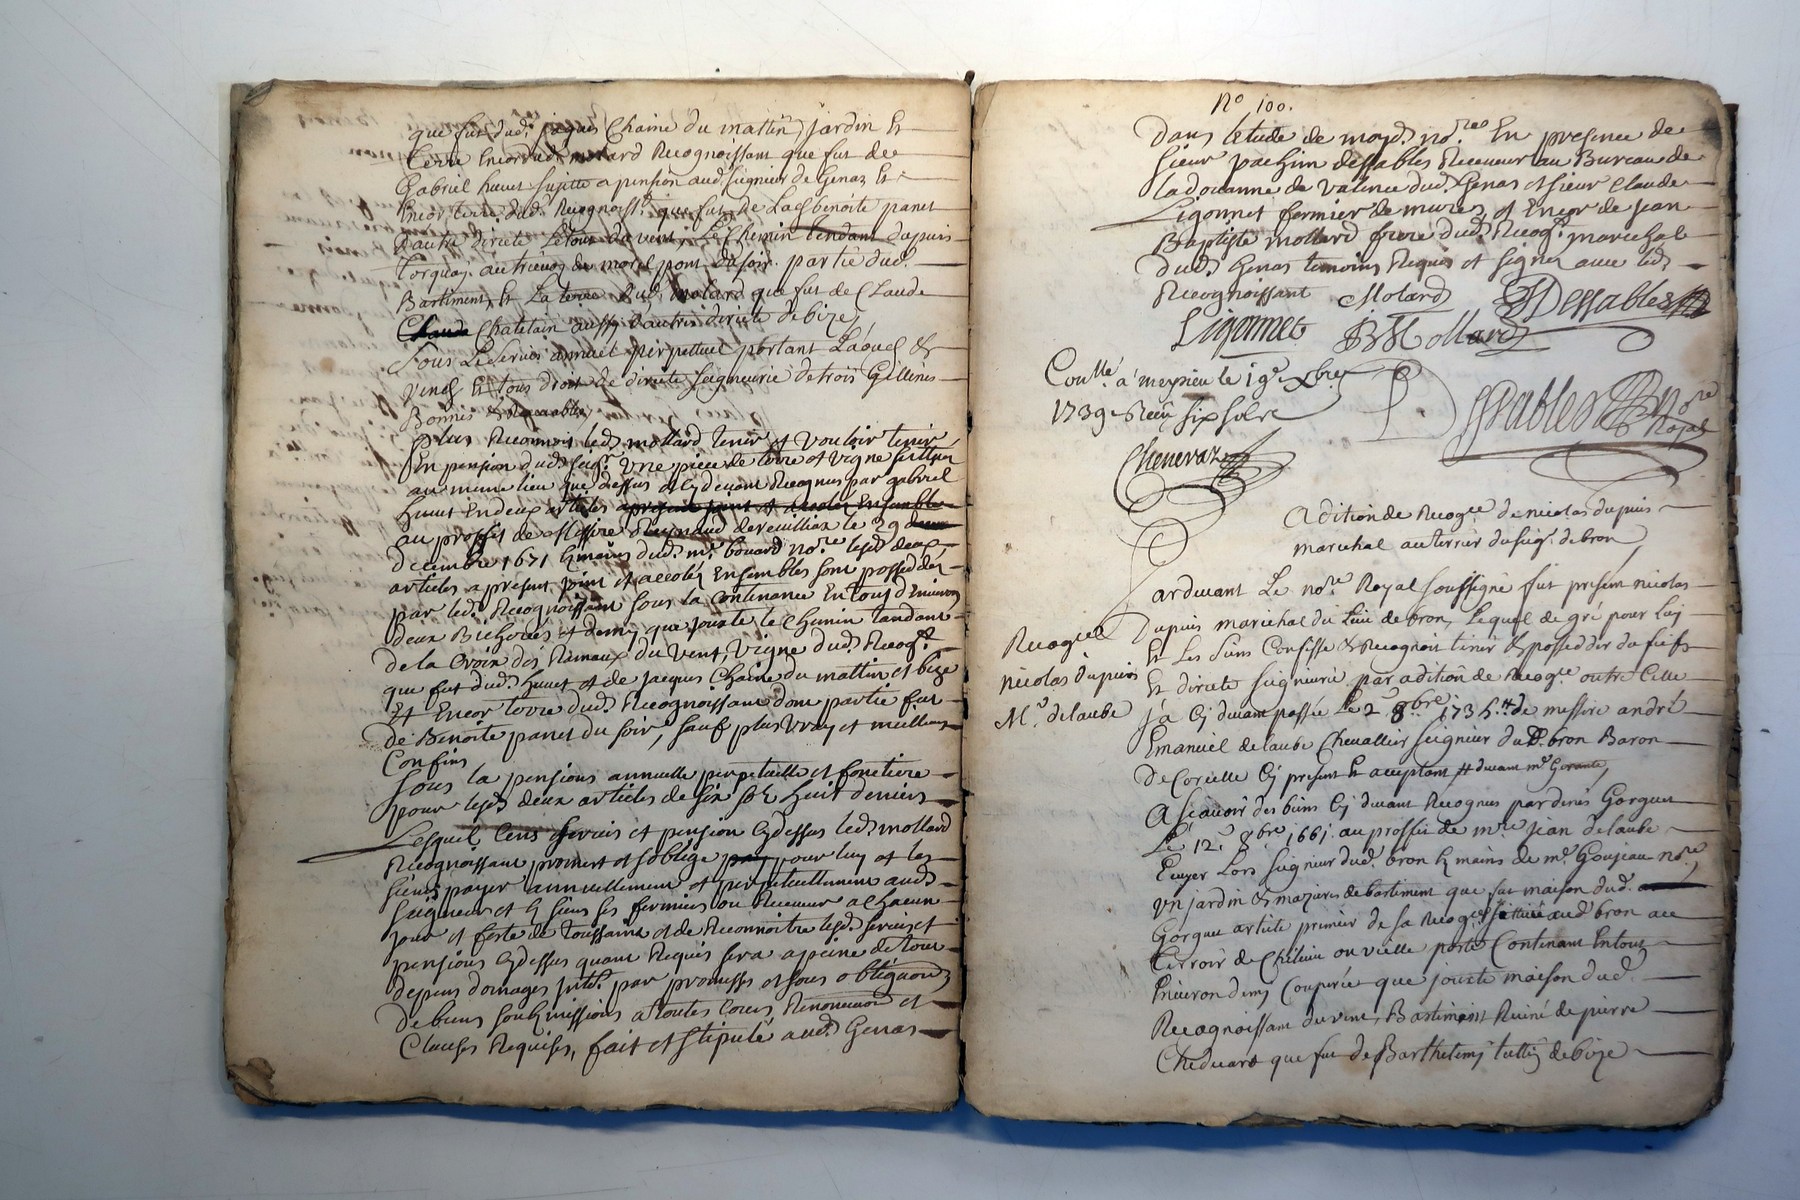 que fut dud. jaques Chaine du mattin, jardin Et
terre Encor dud. molard Recognoissant que fut de
Gabriel huuet sujette a pension aud. seigneur de Genaz Et
Encor terre dud. Recognoisst. que fut de benoite panet
d'autre directe, le tout du vent, Le Chemin tendant depuis
au pont du soir, partie dud.
Bastiment, Et La terre dud. molard que fut de Claude
Chatelain aussy d'autre directe de bize,
Sous Le servis annuel perpettuel portant Laods &
Vends Et tous droit de directe seigneurie de trois Gellines
Bonnes & Recevables,
Plus Reconnois led. mollard tenir et vouloir tenir
En pension dud. seigr. une piece de terre et vigne scittuée
au meme lieu que dessus et Cy devant Recognus par gabriel
huuet En deux articles
au proffit de Messire de reuilliax le 29
decembre 1671 Es mains dud. me. bouard nore. lesd. deux
articles a present joint et accolés Ensembles sont possedés
par led. Recognoissant sous la Continance En tout d'Environ
deux Bicherées et demy que jouxte le Chemin tandant
de la Croix des Rameaux du vent, vigne dud. Recogt.
que fut dud. huuet et de jacques Chaine du mattin et bize
Et Encor terre dud. Recognoissant dont partie fut
de Benoite panet du soir, sauf plus vray et meilleurs
Confins
Sous la pensions annuelle perpetuelle et fonciere
pour lesd. deux articles de six sols huit deniers
Lesquel Cens servis et pension Cy dessus led. mollard
Recognoissant promet et s'oblige pour luy et les
siens payer annuellement et perpetuellement aud.
seigneur et Es siens ses fermiers ou Receveur a Chacun
jour et feste de Toussaint et de Reconnoitre lesd. servis et
pensions Cy dessus quant Requis sera a peine de tous
depens domages intts. par promesses et sous obligaon
de biens soubmissions a toutes Cours, Renonciaon et
Clauses Requises, fait et stipulé aud. Genas
No 100.
Dans letude de moyd. nore. En presence de
sieur joachim dessables Receveur au Bureau de
la doüanne de valence dud. Genas et sieur Claude
Ligonnet fermier de mures, et Encor de jean
Baptiste mollard frere dud. Recogt. marechal
dud. Genas temoins Requis et signés avec led.
Recognoissant Molard Dessables
Ligonnet JBMollard
Conllé a meyzieu le 19e xbre
1739 Reçu six sols
Sablon nore
Royal
Chenevaz
Adition de Recogce. de nicolas dupuis
marechal au terrier du seigr. de bron,
Pardevant Le nore. Royal soussigné fut present nicolas
Dupuis marechal du lieu de bron, Lequel de gré pour luy
Et Les siens Confesse & Recognoit tenir & posseder du fiefs
Et directe seigneurie par adition de Recogce outre Celle
ja Cy devant passée Le 2 8bre 1735 de messire andré
Emanuel delaube Chevallier seigneur dud. bron Baron
De Corcelle Cy present Et aceptant, devant me.
Recogce
nicolas Dupuis
Mr. delaube
A sçavoir des biens Cy devant Recognus par denis Gorguer
Le 12e 8bre 1661. au proffit de mre jean delaube
Ecuyer Lors seigneur dud. bron Es mains de me. Goujeau nore,
un jardin & mazures de bastiment que fut maison dud.
Gorguer article premier de sa Recogce. scittué aud. bron au
terroir de ou vielle porte Contenant En tout
Environ demy Couperée que jouxte maison dud.
Recognoissant du vent, Bastiment Ruiné de pierre
que fut de Barthelemy de bize